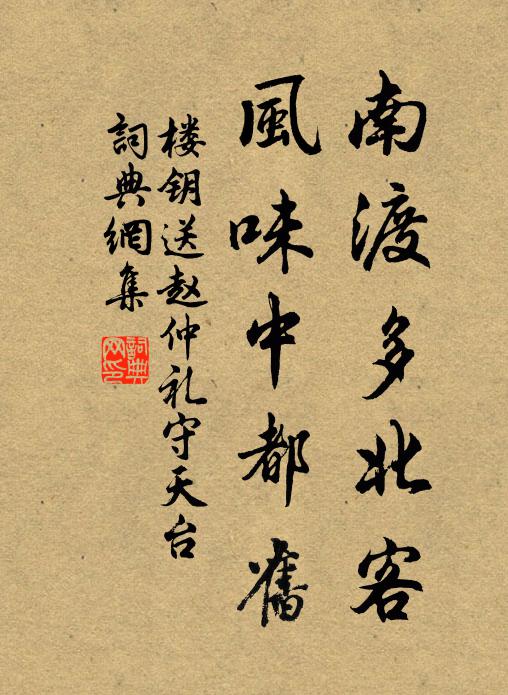 南渡多北客
風味中都舊
楼钥送赵仲礼守天台
詞典網集
詞典网印